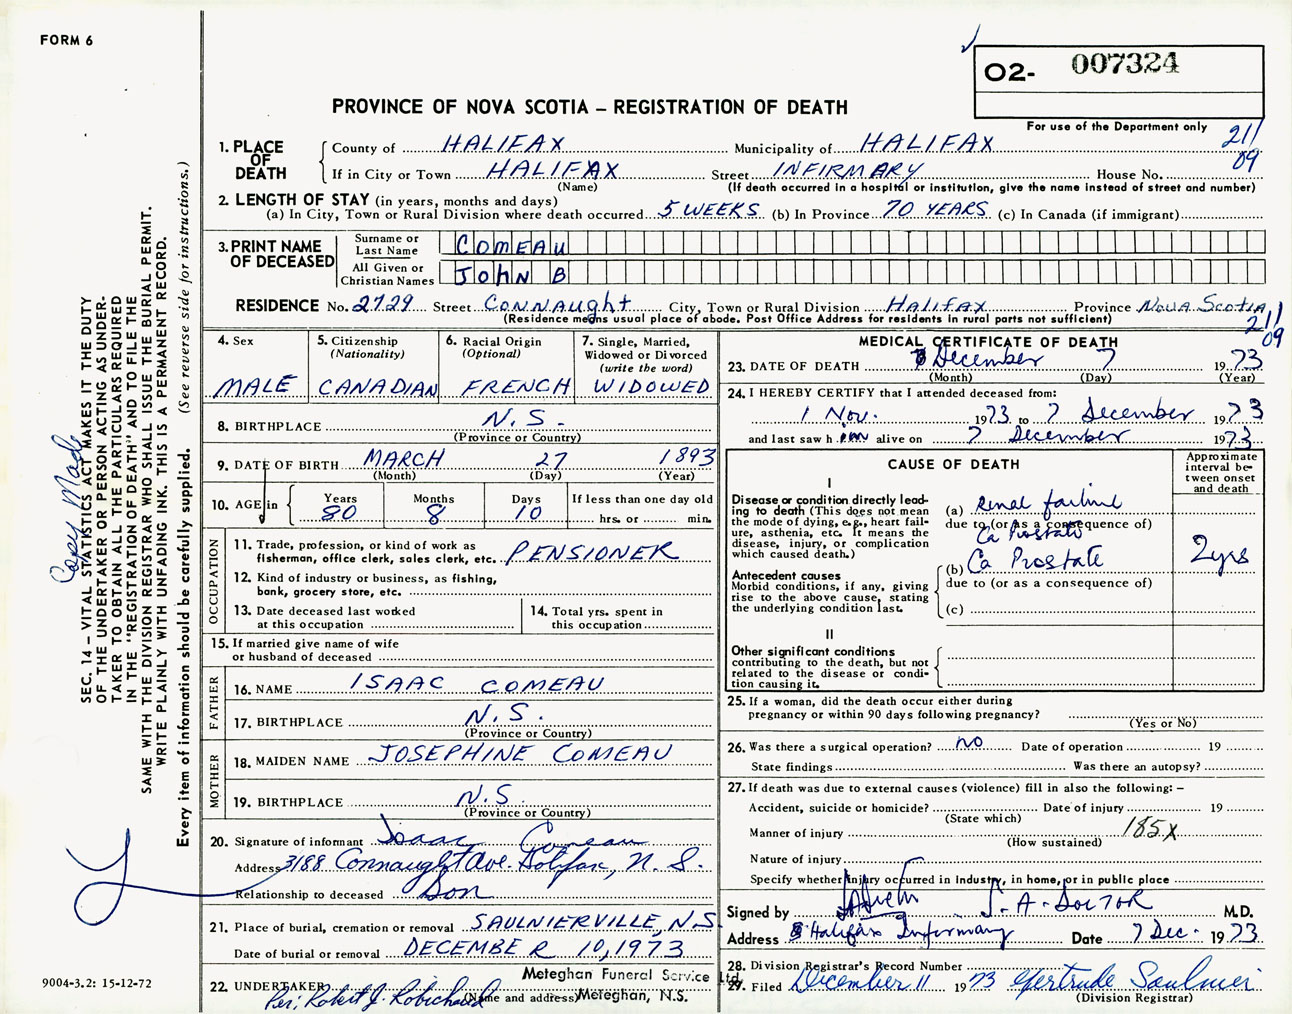 FORM 6
O2- 007324
For use of the Department only
211
09
PROVINCE OF NOVA SCOTIA – REGISTRATION OF DEATH
1. PLACE OF DEATH
County of HALIFAX Municipality of HALIFAX
If in City or Town HALIFAX Street INFIRMARY House No.
(Name) (If death occurred in a hospital or institution, give the name instead of street and number)
2. LENGTH OF STAY (in years, months and days)
(a) In City, Town or Rural Division where death occurred 5 WEEKS (b) In Province 70 YEARS (c) In Canada (if immigrant)
3. PRINT NAME OF DECEASED
Surname or Last Name COMEAU
All Given or Christian Names JOHN B
RESIDENCE No. 2729 Street Connaught City, Town or Rural Division Halifax Province Nova Scotia
(Residence means usual place of abode. Post Office Address for residents in rural parts not sufficient)
211
09
4. Sex MALE
5. Citizenship (Nationality) CANADIAN
6. Racial Origin (Optional) FRENCH
7. Single, Married, Widowed or Divorced (write the word) WIDOWED
8. BIRTHPLACE N.S.
(Province or Country)
9. DATE OF BIRTH MARCH 27 1893
(Month) (Day) (Year)
10. AGE in Years 80 Months 8 Days 10 If less than one day old hrs. or min.
OCCUPATION
11. Trade, profession, or kind of work as fisherman, office clerk, sales clerk, etc. PENSIONER
12. Kind of industry or business, as fishing, bank, grocery store, etc.
13. Date deceased last worked at this occupation
14. Total yrs. spent in this occupation
15. If married give name of wife or husband of deceased
FATHER
16. NAME ISAAC COMEAU
17. BIRTHPLACE N.S.
(Province or Country)
MOTHER
18. MAIDEN NAME JOSEPHINE COMEAU
19. BIRTHPLACE N.S.
(Province or Country)
20. Signature of informant Isaac Comeau
Address 3188 Connaught Ave. Halifax, N.S.
Relationship to deceased Son
21. Place of burial, cremation or removal SAULNIERVILLE, N.S.
Date of burial or removal DECEMBER 10, 1973
22. UNDERTAKER Meteghan Funeral Service Ltd.
Per: Robert J. Robichaud (Name and address) Meteghan, N.S.
MEDICAL CERTIFICATE OF DEATH
23. DATE OF DEATH December 7 1973
(Month) (Day) (Year)
24. I HEREBY CERTIFY that I attended deceased from:
1 Nov. 1973 to 7 December 1973
and last saw him alive on 7 December 1973
CAUSE OF DEATH
Approximate interval between onset and death
I
Disease or condition directly leading to death (This does not mean the mode of dying, e.g., heart failure, asthenia, etc. It means the disease, injury, or complication which caused death.)
(a) Renal failure
due to (or as a consequence of)
Ca Prostate
Antecedent causes
Morbid conditions, if any, giving rise to the above cause, stating the underlying condition last.
(b) Ca Prostate 2 yrs
due to (or as a consequence of)
(c)
II
Other significant conditions contributing to the death, but not related to the disease or condition causing it.
25. If a woman, did the death occur either during pregnancy or within 90 days following pregnancy?
(Yes or No)
26. Was there a surgical operation? no Date of operation 19
State findings Was there an autopsy?
27. If death was due to external causes (violence) fill in also the following: –
Accident, suicide or homicide? Date of injury 19
(State which)
Manner of injury 185X
(How sustained)
Nature of injury
Specify whether injury occurred in Industry, in home, or in public place
Signed by M.D.
Address Halifax Infirmary Date 7 Dec. 1973
28. Division Registrar's Record Number
29. Filed December 11 1973 Gertrude Saulnier
(Division Registrar)
SEC. 14 – VITAL STATISTICS ACT MAKES IT THE DUTY
OF THE UNDERTAKER OR PERSON ACTING AS UNDER-
TAKER TO OBTAIN ALL THE PARTICULARS REQUIRED
IN THE "REGISTRATION OF DEATH" AND TO FILE THE
SAME WITH THE DIVISION REGISTRAR WHO SHALL ISSUE THE BURIAL PERMIT.
WRITE PLAINLY WITH UNFADING INK. THIS IS A PERMANENT RECORD.
Every item of information should be carefully supplied. (See reverse side for instructions.)
Copy Made
9004-3.2: 15-12-72